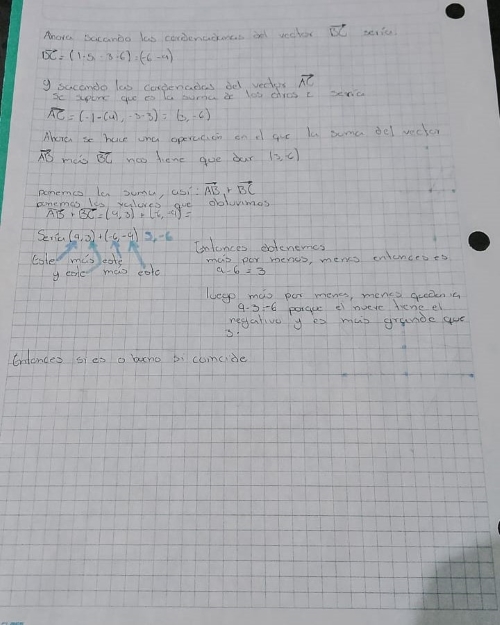 Ahora sacando las cordenadas del vector BC seria.
BC = (1-5, -3-6) = (-6 -9)
y sacando las cordenadas del vector AC
se supone que es la suma de los otros 2 seria
AC = (-1-(4), -3-3) = (3, -6)
Ahora se hace una operación en el que la suma del vector
AB más BC nos tiene que dar (3,-6)
ponemos la suma, así: AB + BC
ponemos los valores que obtuvimos
AB + BC = (9,3) + (-6, -9) =
Seria (9,3) + (-6 -9) 3, -6
Este más este
y este más este
Entonces obtenemos
más por menos, menos entonces es
9-6 = 3
luego más por menos, menos quedaria
9-3=-6 porque el nueve tiene el
negativo y es más grande que
3.
Entonces si es o bueno si coincide